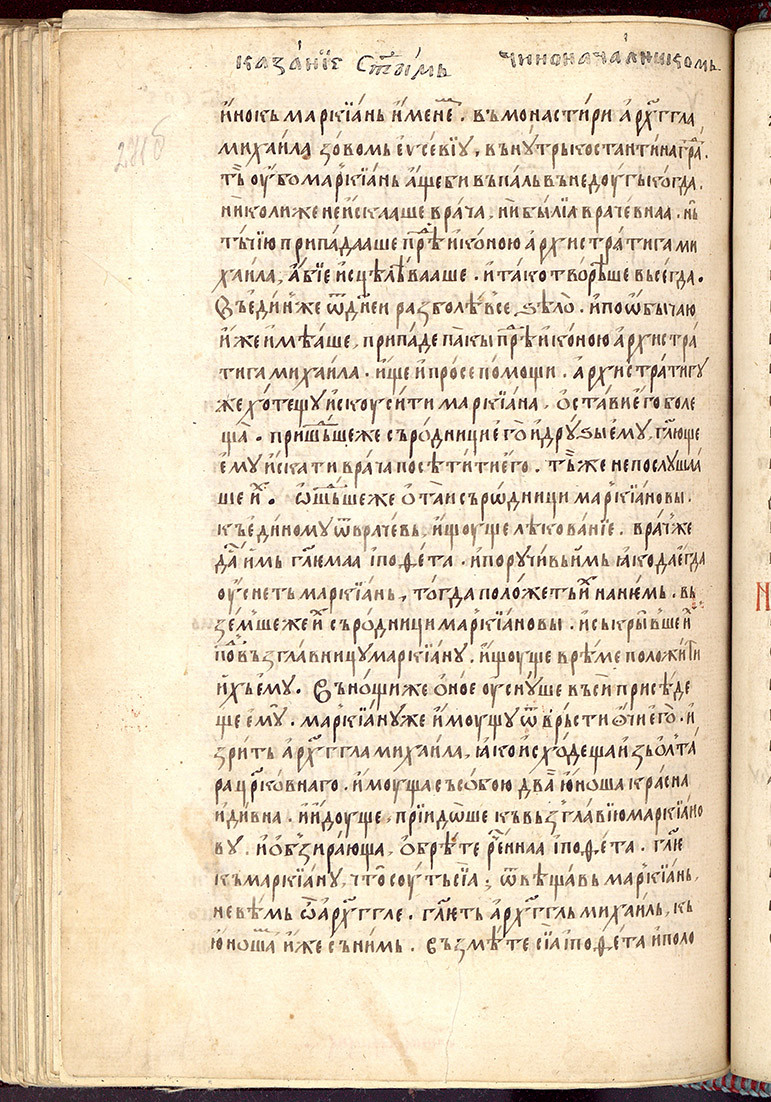 казанїе ст҃ыимь чиноначалникомь
271б
инокь маркїань имене҆м . въ монастири арх҃гг҃ла
михаила зовомь еѵсевїу , вънутры костантина гра҆ .
тъ оубо маркїань аще би въпаль въ недоугы когда .
николиже не искааше врача . ни былїа врачевнаа . нѫ
тъчїю припадааше прѣ҆ иконою архистратига ми
хаила , абїе исцѣлѣвааше . и тако творѣше въсегда .
Въ единже ѿ днеи разболѣ все ѕѣло . и по ѡбычаю
иже имѣаше , припаде пакы прѣ҆ иконою архистра
тига михаила . ище и просе помощи . архистратигу
же хотещу искоусити маркїана , остави его боле
ща . пришъ҆ше же съродници его и друѕы ему , гл҃юще
ему искати врача посѣтити его . тъже не послуша
ше и҆х . ѡшъ҆ше же отаи съродници маркїановы .
къ единому ѿ врачевь , ищоуще лѣкованїе . врач҆же
да҆ имь гл҃емаа їпоѳета . и поручивь имь ꙗко да егда
оуснеть маркїань , тогда положеть и҆х на немь . въ
земше же и҆х съродници маркїановы . и съкрывше и҆х
по҆ възглавницу маркїану . ищоуще врѣме положити
ихъ ему . Въ нощи же оное оуснуше въси присѣде
ще ему . маркїану же имоущу ѿвръсти очи его . и
зрить арх҃гг҃ла михаила , ꙗко исходеща изь олта
ра цр҃ковнаго . имоуща съ собою два҆ юноша красна
и дивна . и идоуще , прїидоше къ възглавїю маркїано
ву . и обзирающа , обрѣте реч҆еннаа їпоѳета . гл҃ю
къ маркїану , что соуть сїа ; ѿвѣщавь маркїань ,
не вѣмь ѡ арх҃гг҃ле . гл҃еть арх҃гг҃ль михаиль , къ
юноша҆ иже съ нимь . Възмѣте сїа їпоѳета и поло